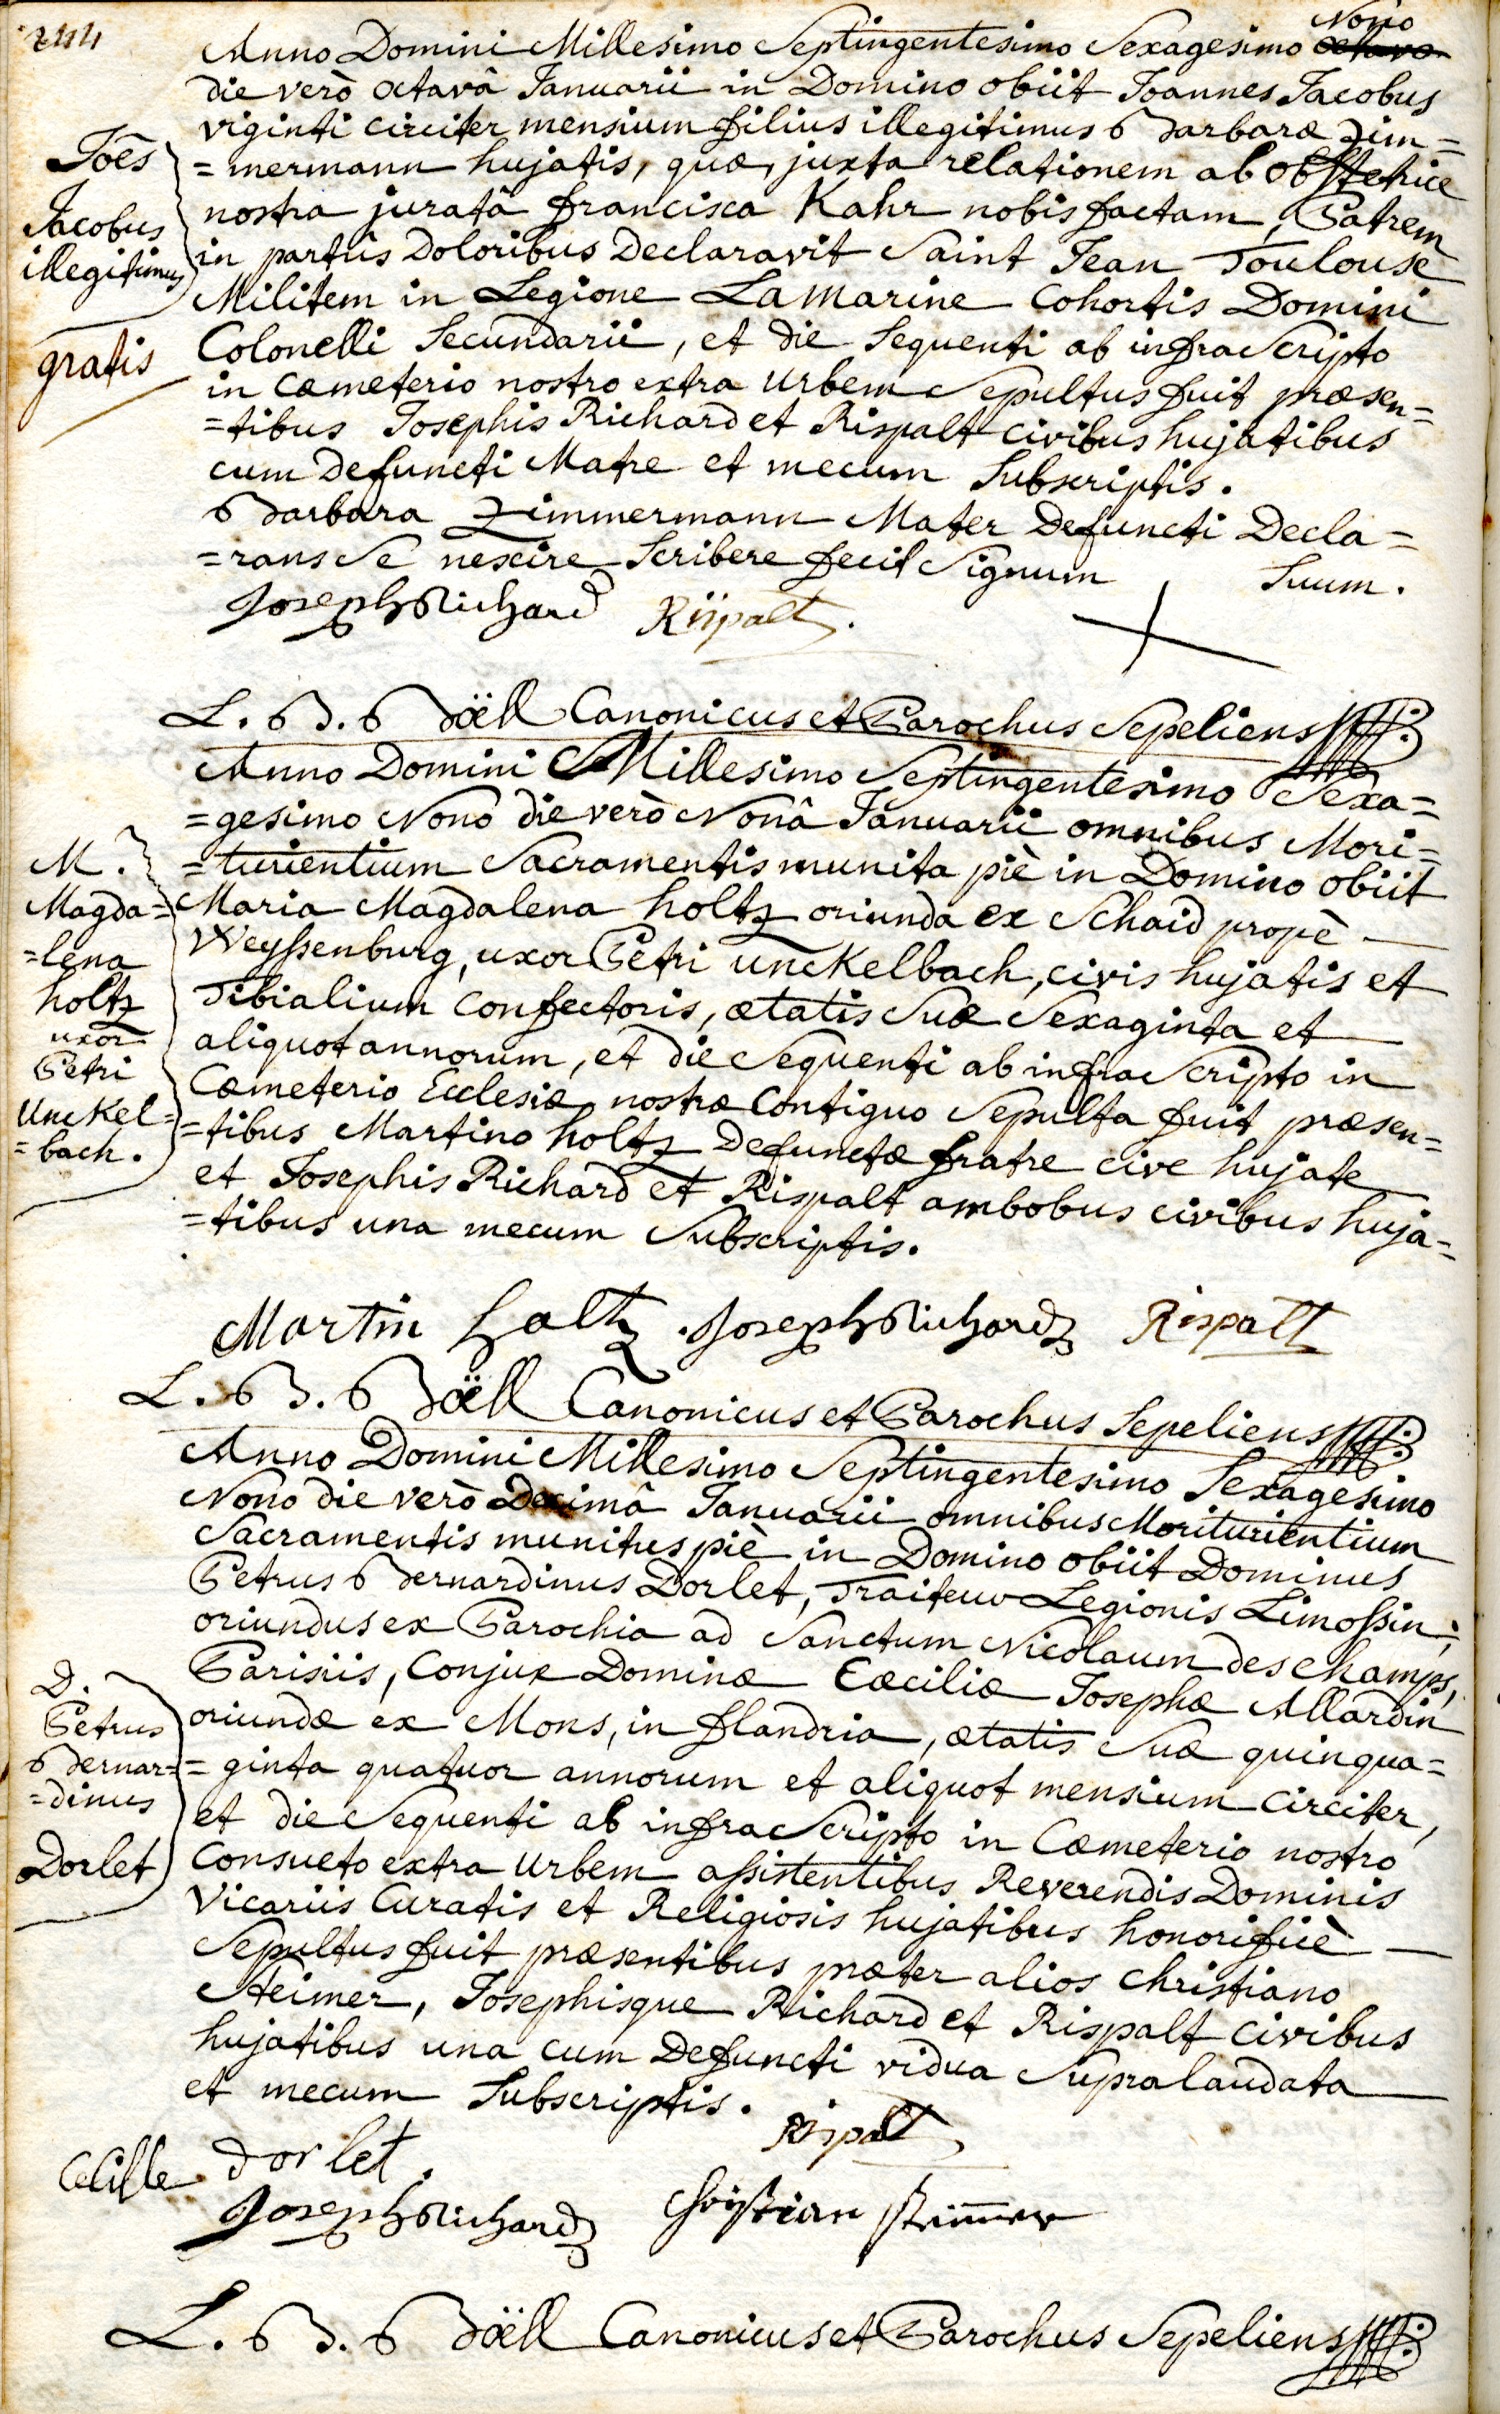 244
Anno Domini Millesimo Septingentesimo Sexagesimo Nono
die verò octavâ Januarii in Domino obiit Joannes Jacobus
viginti circiter mensium filius illegitimus Barbaræ Zim=
=mermann hujatis, quæ, juxta relationem ab obstetrice
nostra juratâ Francisca Kahr nobis factam, Patrem
in partûs Doloribus Declaravit Saint Jean Toulouse
Militem in Legione La Marine Cohortis Domini
Colonelli Secundarii, et die Sequenti ab infraScripto
in Cæmeterio nostro extra Urbem Sepultus fuit præsen=
=tibus Josephis Richard et Rispalt civibus hujatibus
cum Defuncti Matre et mecum Subscriptis.
Joēs
Jacobus
illegitimus
gratis
Barbara Zimmermann Mater Defuncti Decla=
=rans Se nescire Scribere fecit Signum + Suum.
Joseph Richard Rispalt.
L. B. Böell Canonicus et Parochus Sepeliens
Anno Domini Millesimo Septingentesimo Sexa=
=gesimo Nono die verò Nonâ Januarii omnibus Mori=
=turientium Sacramentis munita piè in Domino obiit
Maria Magdalena Holtz oriunda ex Schaid propè
Weyssenburg, uxor Petri Unckelbach, civis hujatis et
Tibialium Confectoris, ætatis Suæ Sexaginta et
aliquot annorum, et die Sequenti ab infraScripto in
Cæmeterio Ecclesiæ nostræ Contiguo Sepulta fuit præsen=
=tibus Martino Holtz Defunctæ fratre cive hujate
et Josephis Richard et Rispalt ambobus civibus huja=
=tibus una mecum Subscriptis.
M.
Magda=
=lena
Holtz
uxor
Petri
Unckel=
=bach.
Martin Holtz Joseph Richard Rispalt
L. B. Böell Canonicus et Parochus Sepeliens
Anno Domini Millesimo Septingentesimo Sexagesimo
Nono die verò Decimâ Januarii omnibus Moriturientium
Sacramentis munitus piè in Domino obiit Dominus
Petrus Bernardinus Dorlet, Traiteur Legionis Limossin,
oriundus ex Parochia ad Sanctum Nicolaum des Champs,
Parisiis, Conjux Dominæ Cæciliæ Josephæ Allardin
oriundæ ex Mons, in Flandria, ætatis Suæ quinqua=
=ginta quatuor annorum et aliquot mensium circiter,
et die Sequenti ab infraScripto in Cæmeterio nostro
Consueto extra Urbem assistentibus Reverendis Dominis
Vicariis Curatis et Religiosis hujatibus honorificè
Sepultus fuit præsentibus præter alios Christiano
Steimer, Josephisque Richard et Rispalt Civibus
hujatibus una cum Defuncti vidua Supralaudata
et mecum Subscriptis.
D.
Petrus
Bernar=
=dinus
Dorlet
Rispalt
Cecille dorlet.
Joseph Richard Christian Steimmer
L. B. Böell Canonicus et Parochus Sepeliens